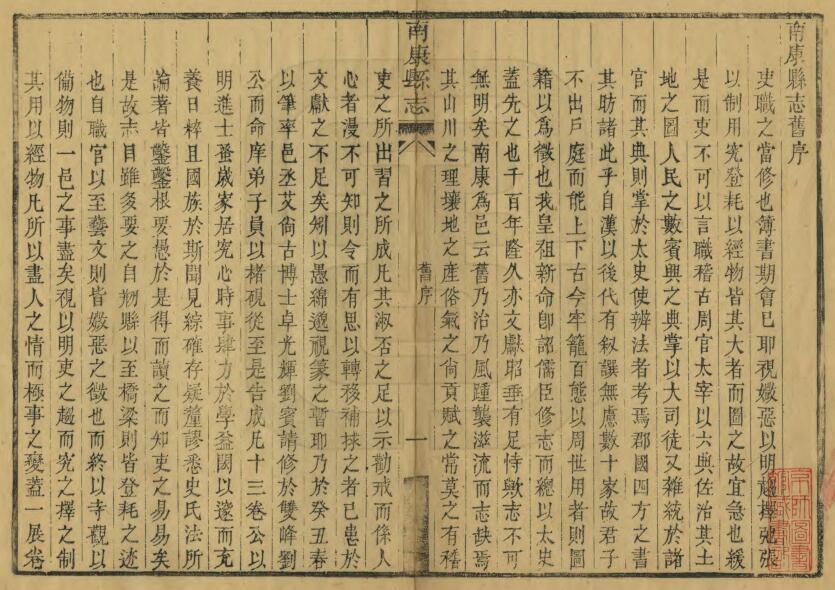 南康縣志舊序
吏職之當修也簿書期會已耶視媺惡以明趨擇弛張
以制用究登耗以經物皆其大者而圖之故宜急也緩
是而吏不可以言職稽古周官太宰以六典佐治其土
地之圖人民之數賓興之典掌以大司徒又雜統於諸
官而其典則掌於太史使辨法者考焉郡國四方之書
其昉諸此乎自漢以後代有叙譔無慮數十家故君子
不出戶庭而能上下古今牢籠百態以周世用者則圖
籍以爲徵也我皇祖新命卽詔儒臣修志而總以太史
蓋先之也千百年隆久亦文獻昭垂有足恃歟志不可
無明矣南康爲邑云舊乃治乃風踵襲滋流而志缺焉
其山川之理壤地之產俗氣之尙貢賦之常莫之有稽
南康縣志
舊序
一
吏之所出習之所成凡其淑否之足以示勸戒而係人
心者漫不可知則令而有思以轉移補捄之者已患於
文獻之不足矣矧以愚綿邈視篆之暫耶乃於癸丑春
以筆率邑丞艾尙古博士卓光輝劉賓請修於雙峰劉
公而命庠弟子員以楮硯從至是告成凡十三卷公以
明進士蚤歲家居究心時事肆力於學益閎以邃而充
養日粹且國族於斯聞見綜確存疑釐謬悉史氏法所
論著皆鑿鑿根要愚於是得而讀之而知吏之易易矣
是故志目雖多要之自剏縣以至橋梁則皆登耗之迹
也自職官以至藝文則皆媺惡之徵也而終以寺觀以
備物則一邑之事盡矣視以明吏之趨而究之擇之制
其用以經物凡所以盡人之情而極事之變蓋一展卷